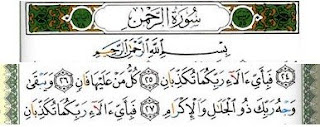 سُورَةُ الرَّحْمَٰن
بِسْمِ اللَّهِ الرَّحْمَٰنِ الرَّحِيمِ
٢٤ فَبِأَيِّ آلَاءِ رَبِّكُمَا تُكَذِّبَانِ ٢٥ كُلُّ مَنْ عَلَيْهَا فَانٍ ٢٦ وَيَبْقَىٰ
وَجْهُ رَبِّكَ ذُو الْجَلَالِ وَالْإِكْرَامِ ٢٧ فَبِأَيِّ آلَاءِ رَبِّكُمَا تُكَذِّبَانِ